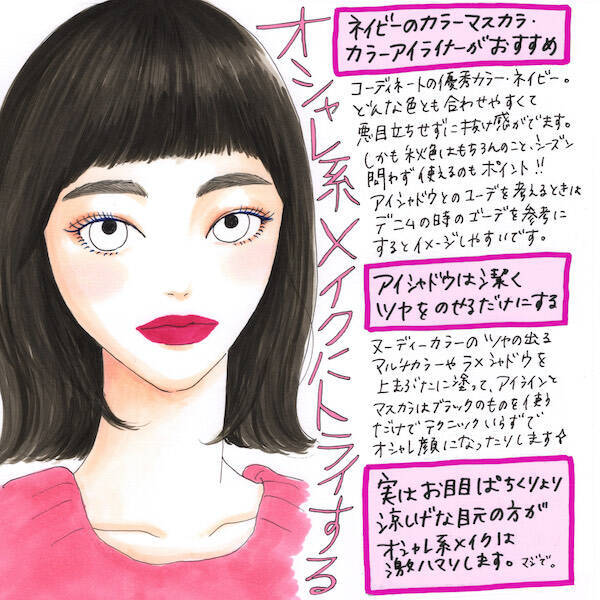 オシャレ系メイクにトライする
ネイビーのカラーマスカラ・
カラーアイライナーがおすすめ
コーディネートの優秀カラー・ネイビー。
どんな色とも合わせやすくて
悪目立ちせずに抜け感がでます。
しかも秋色はもちろんのこと、シーズン
問わず使えるのもポイント!!
アイシャドウとのコーデを考えるときは
デニムの時のコーデを参考に
するとイメージしやすいです。
アイシャドウは潔く
ツヤをのせるだけにする
ヌーディーカラーのツヤの出る
マルチカラーやラメシャドウを
上まぶたに塗って、アイラインと
マスカラはブラックのものを使う
だけでテクニックいらずで
オシャレ顔になったりします♪
実はお目目ぱちくりより
涼しげな目元の方が
オシャレ系メイクは
激ハマりします。マジで。